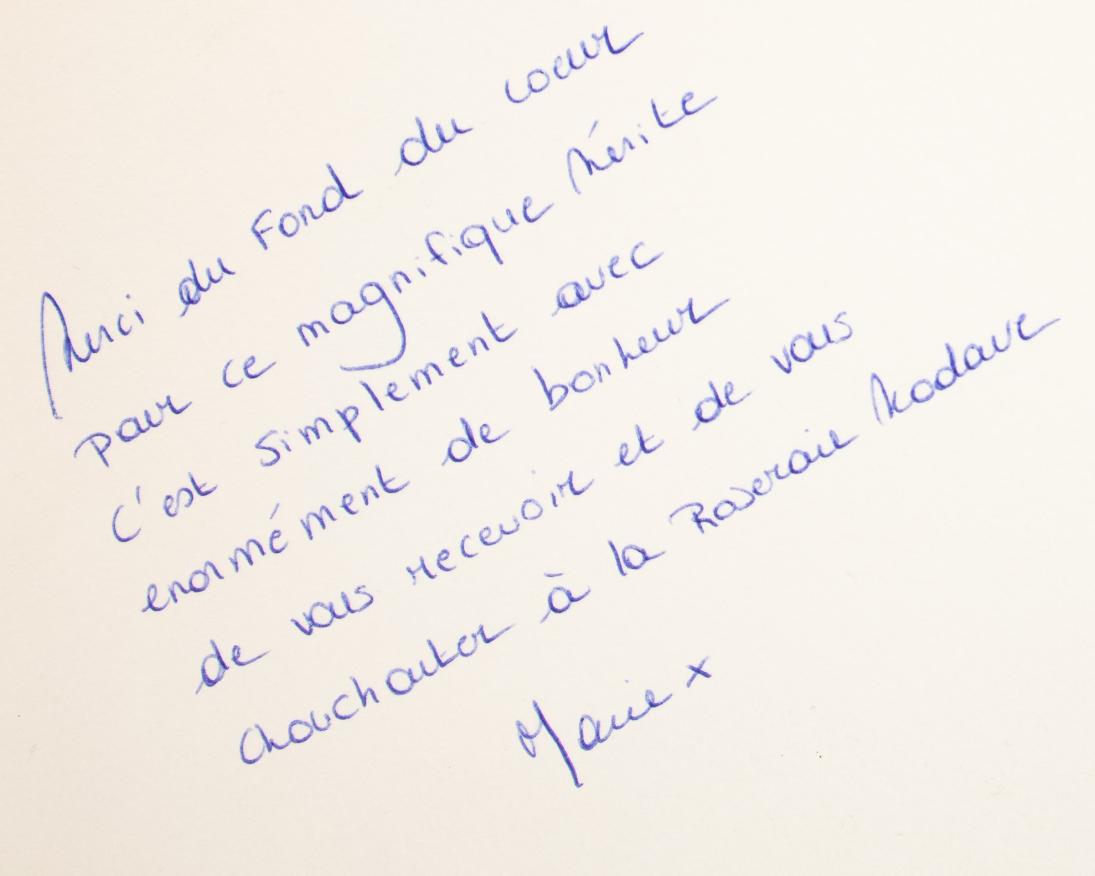 Merci du Fond du coeur
pour ce magnifique Mérite
C'est simplement avec
enormément de bonheur
de vous recevoir et de vous
Chouchouter à la Roseraie Modave
Marie x